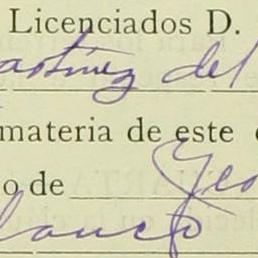 Licenciados D.
artínez del
materia de este
o de Geo
lanco